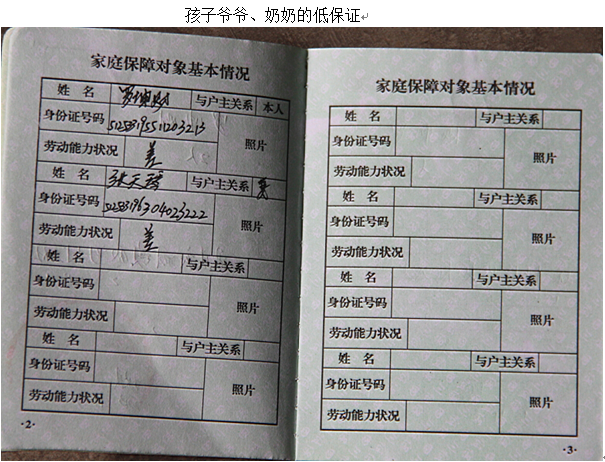 孩子爷爷、奶奶的低保证
家庭保障对象基本情况
姓 名 与户主关系 本人
身份证号码
照片
劳动能力状况 差
姓 名 与户主关系 妻
身份证号码
照片
劳动能力状况 差
姓 名 与户主关系
身份证号码
照片
劳动能力状况
姓 名 与户主关系
身份证号码
照片
劳动能力状况
·2·
家庭保障对象基本情况
姓 名 与户主关系
身份证号码
照片
劳动能力状况
姓 名 与户主关系
身份证号码
照片
劳动能力状况
姓 名 与户主关系
身份证号码
照片
劳动能力状况
姓 名 与户主关系
身份证号码
照片
劳动能力状况
·3·